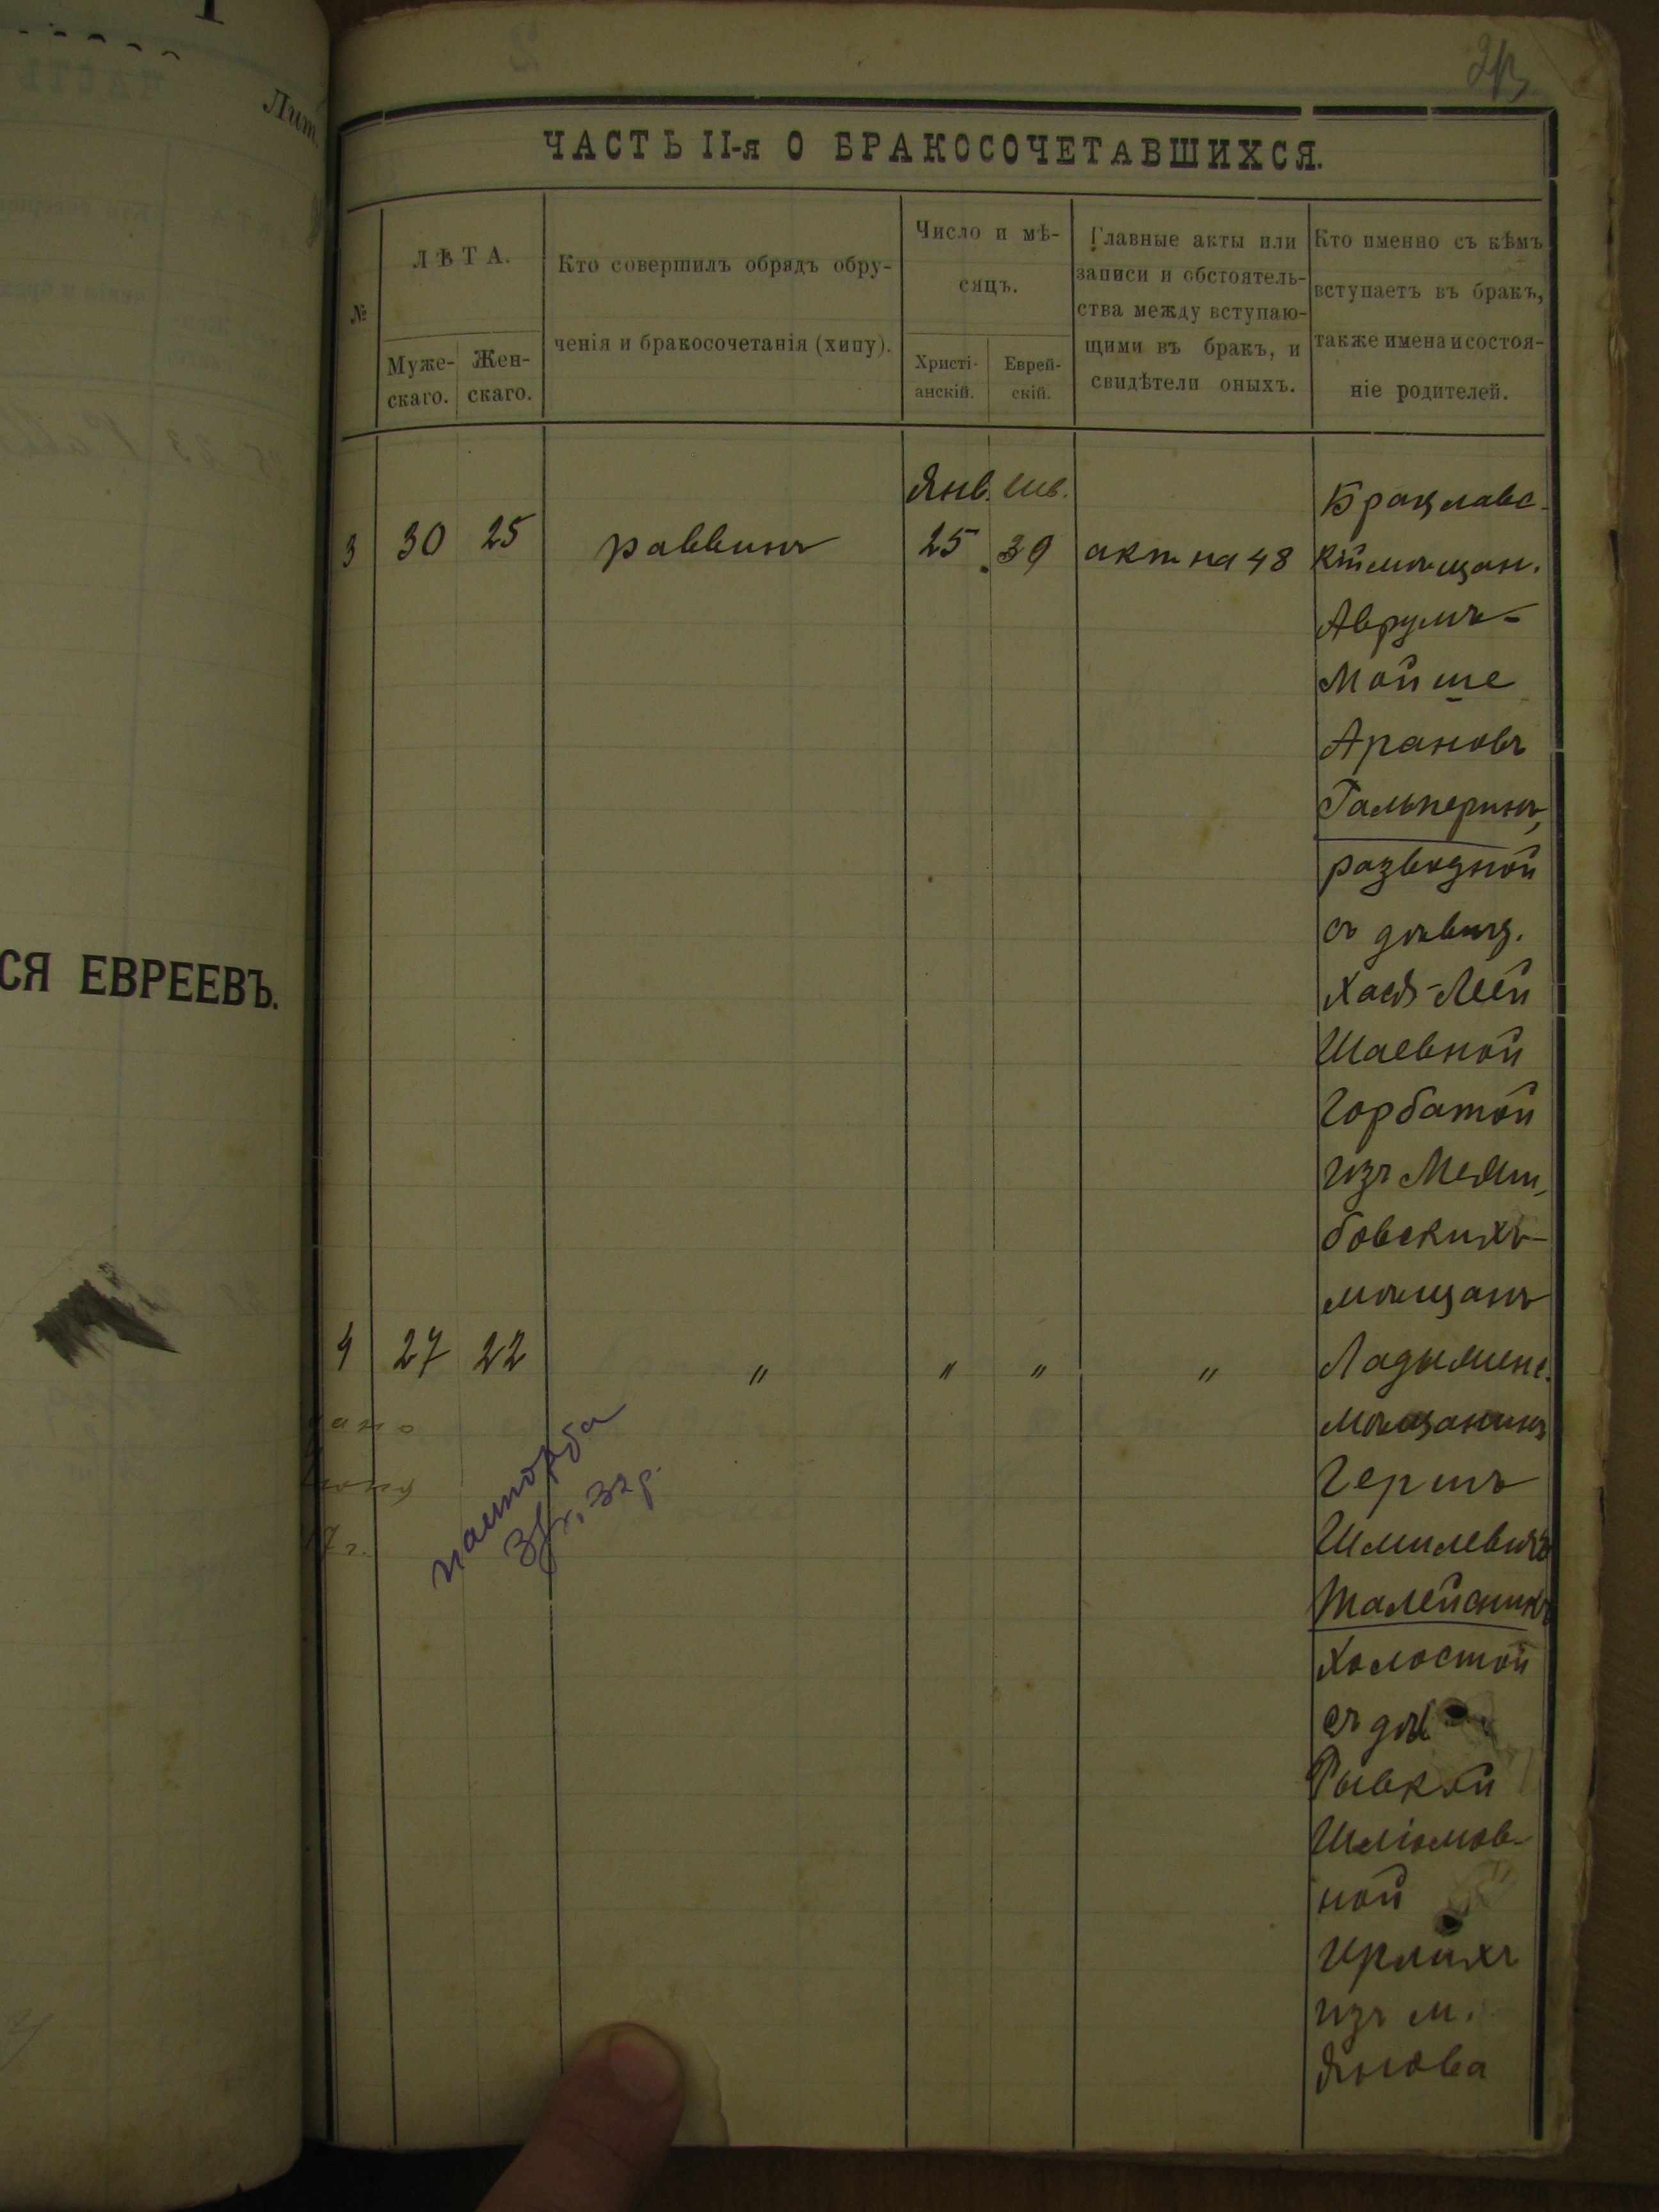 Лит.
СЯ ЕВРЕЕВЪ.
ЧАСТЬ II-я О БРАКОСОЧЕТАВШИХСЯ.
№
ЛѢТА.
Муже-
скаго.
Жен-
скаго.
Кто совершилъ обрядъ обру-
ченія и бракосочетанія (хипу).
Число и мѣ-
сяцъ.
Христі-
анскій.
Еврей-
скій.
Главные акты или
записи и обстоятель-
ства между вступаю-
щими въ бракъ, и
свидѣтели оныхъ.
Кто именно съ кѣмъ
вступаетъ въ бракъ,
также имена и состоя-
ніе родителей.
Янв. Шв.
3 30 25 раввинъ 25 актъ на 48
Брацлавс-
кій мѣщан.
Аврумъ-
Мойше
Арановъ
Гальперинъ,
разводной
съ дѣвиц.
Хаей-Леей
Шаевной
Горбатой
изъ Межи-
бовскихъ
мѣщанъ
4 27 22 " " " "
Ладыжинс.
мѣщанинъ
Гершъ
Шмилевичъ
Талейсникъ
холостой
съ дѣв
Рывкой
Шліомов-
ной
Ирлихъ
изъ м.
Янова